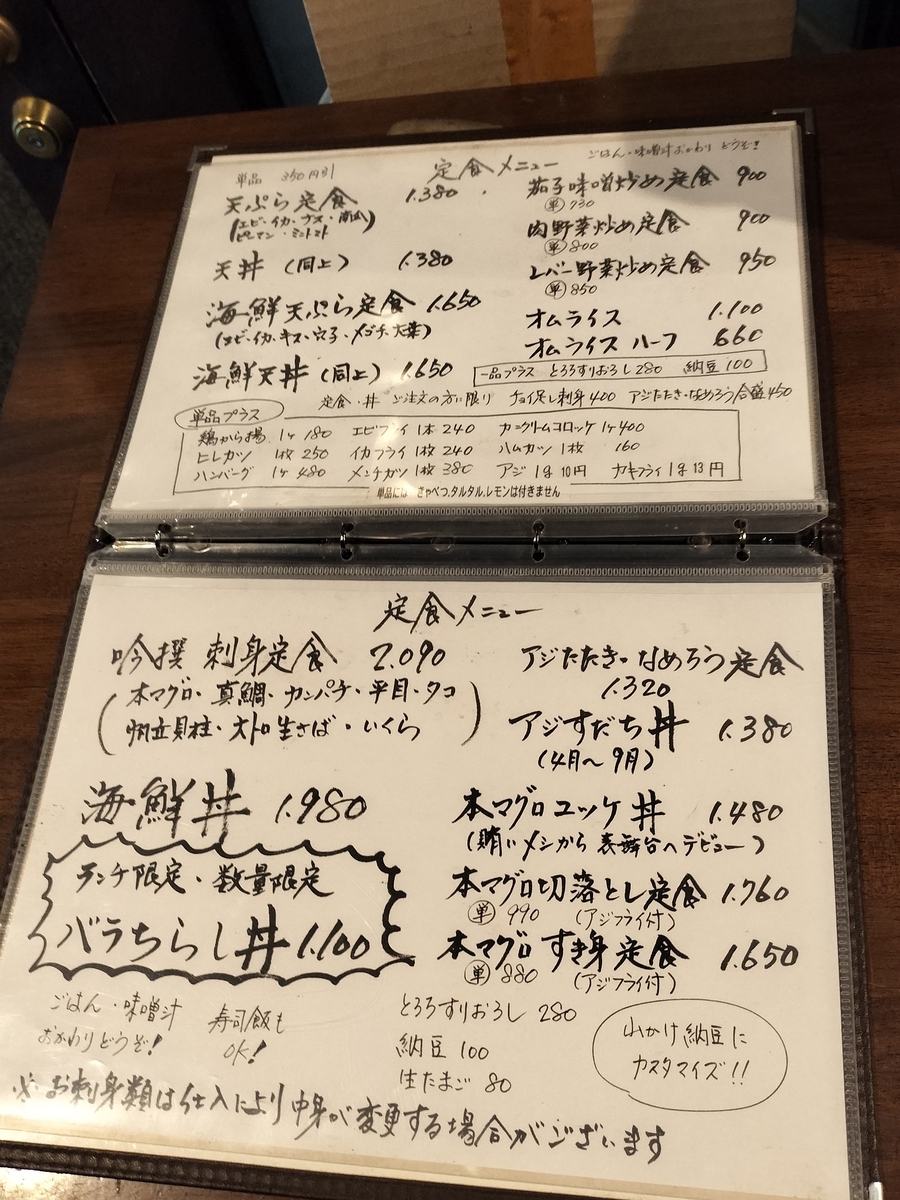 定食メニュー
ごはん・味噌汁おかわりどうぞ!
単品 350円引
天ぷら定食 1.380
(エビ・イカ・ナス・南瓜
ピーマン・ミニトマト)
天丼 (同上) 1.380
海鮮天ぷら定食 1.650
(エビ・イカ・キス・穴子・メゴチ・大葉)
海鮮天丼 (同上) 1.650
茄子味噌炒め定食 900
単 730
肉野菜炒め定食 900
単 800
レバー野菜炒め定食 950
単 850
オムライス 1.100
オムライス ハーフ 660
一品プラス とろろすりおろし 280 納豆 100
定食・丼 ご注文の方に限り チョイ足し刺身 400 アジたたき・なめろう合盛 450
単品プラス
鶏から揚 1ヶ 180 エビフライ 1本 240 カニクリームコロッケ 1ヶ 400
ヒレカツ 1枚 250 イカフライ 1枚 240 ハムカツ 1枚 160
ハンバーグ 1ヶ 480 メンチカツ 1枚 380 アジ 1g 10円 カキフライ 1g 13円
単品には きゃべつ、タルタル、レモンは付きません
定食メニュー
吟撰 刺身定食 2.090
(本マグロ・真鯛・カンパチ・平目・タコ
帆立貝柱・大トロ生さば・いくら)
海鮮丼 1.980
ランチ限定・数量限定
バラちらし丼 1.100
ごはん・味噌汁
おかわりどうぞ!
寿司飯も
OK!
アジたたき・なめろう定食
1.320
アジすだち丼 1.380
(4月〜9月)
本マグロユッケ丼 1.480
(賄いメシから 表舞台へデビュー)
本マグロ切落とし定食 1.760
単 990 (アジフライ付)
本マグロすき身定食 1.650
単 880 (アジフライ付)
とろろすりおろし 280
納豆 100
生たまご 80
山かけ納豆に
カスタマイズ!!
※ お刺身類は仕入により中身が変更する場合がございます